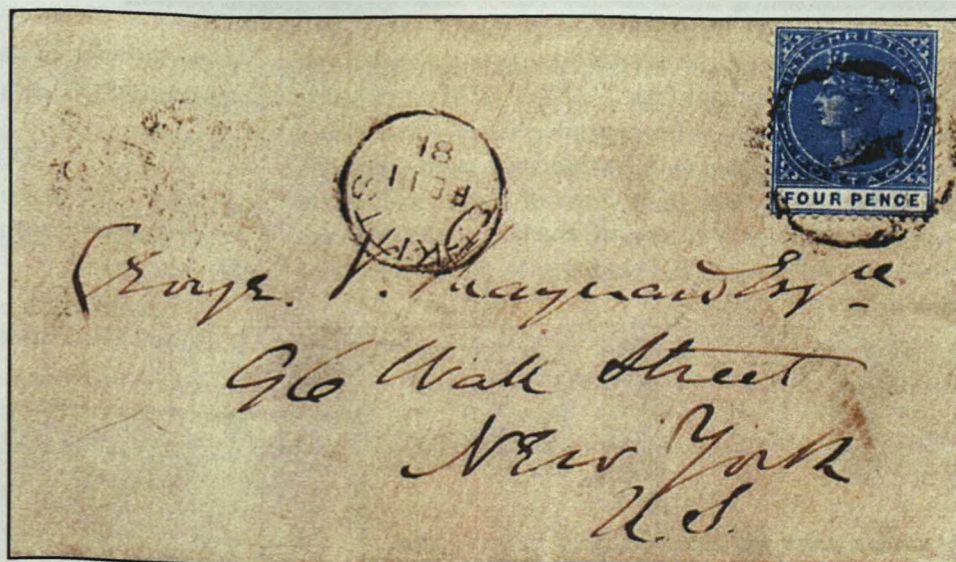 SAINT CHRISTOPHER
POSTAGE
FOUR PENCE
ST. KITTS
FE 11
81
George. Esqre
96 Wall Street
New York
U.S.